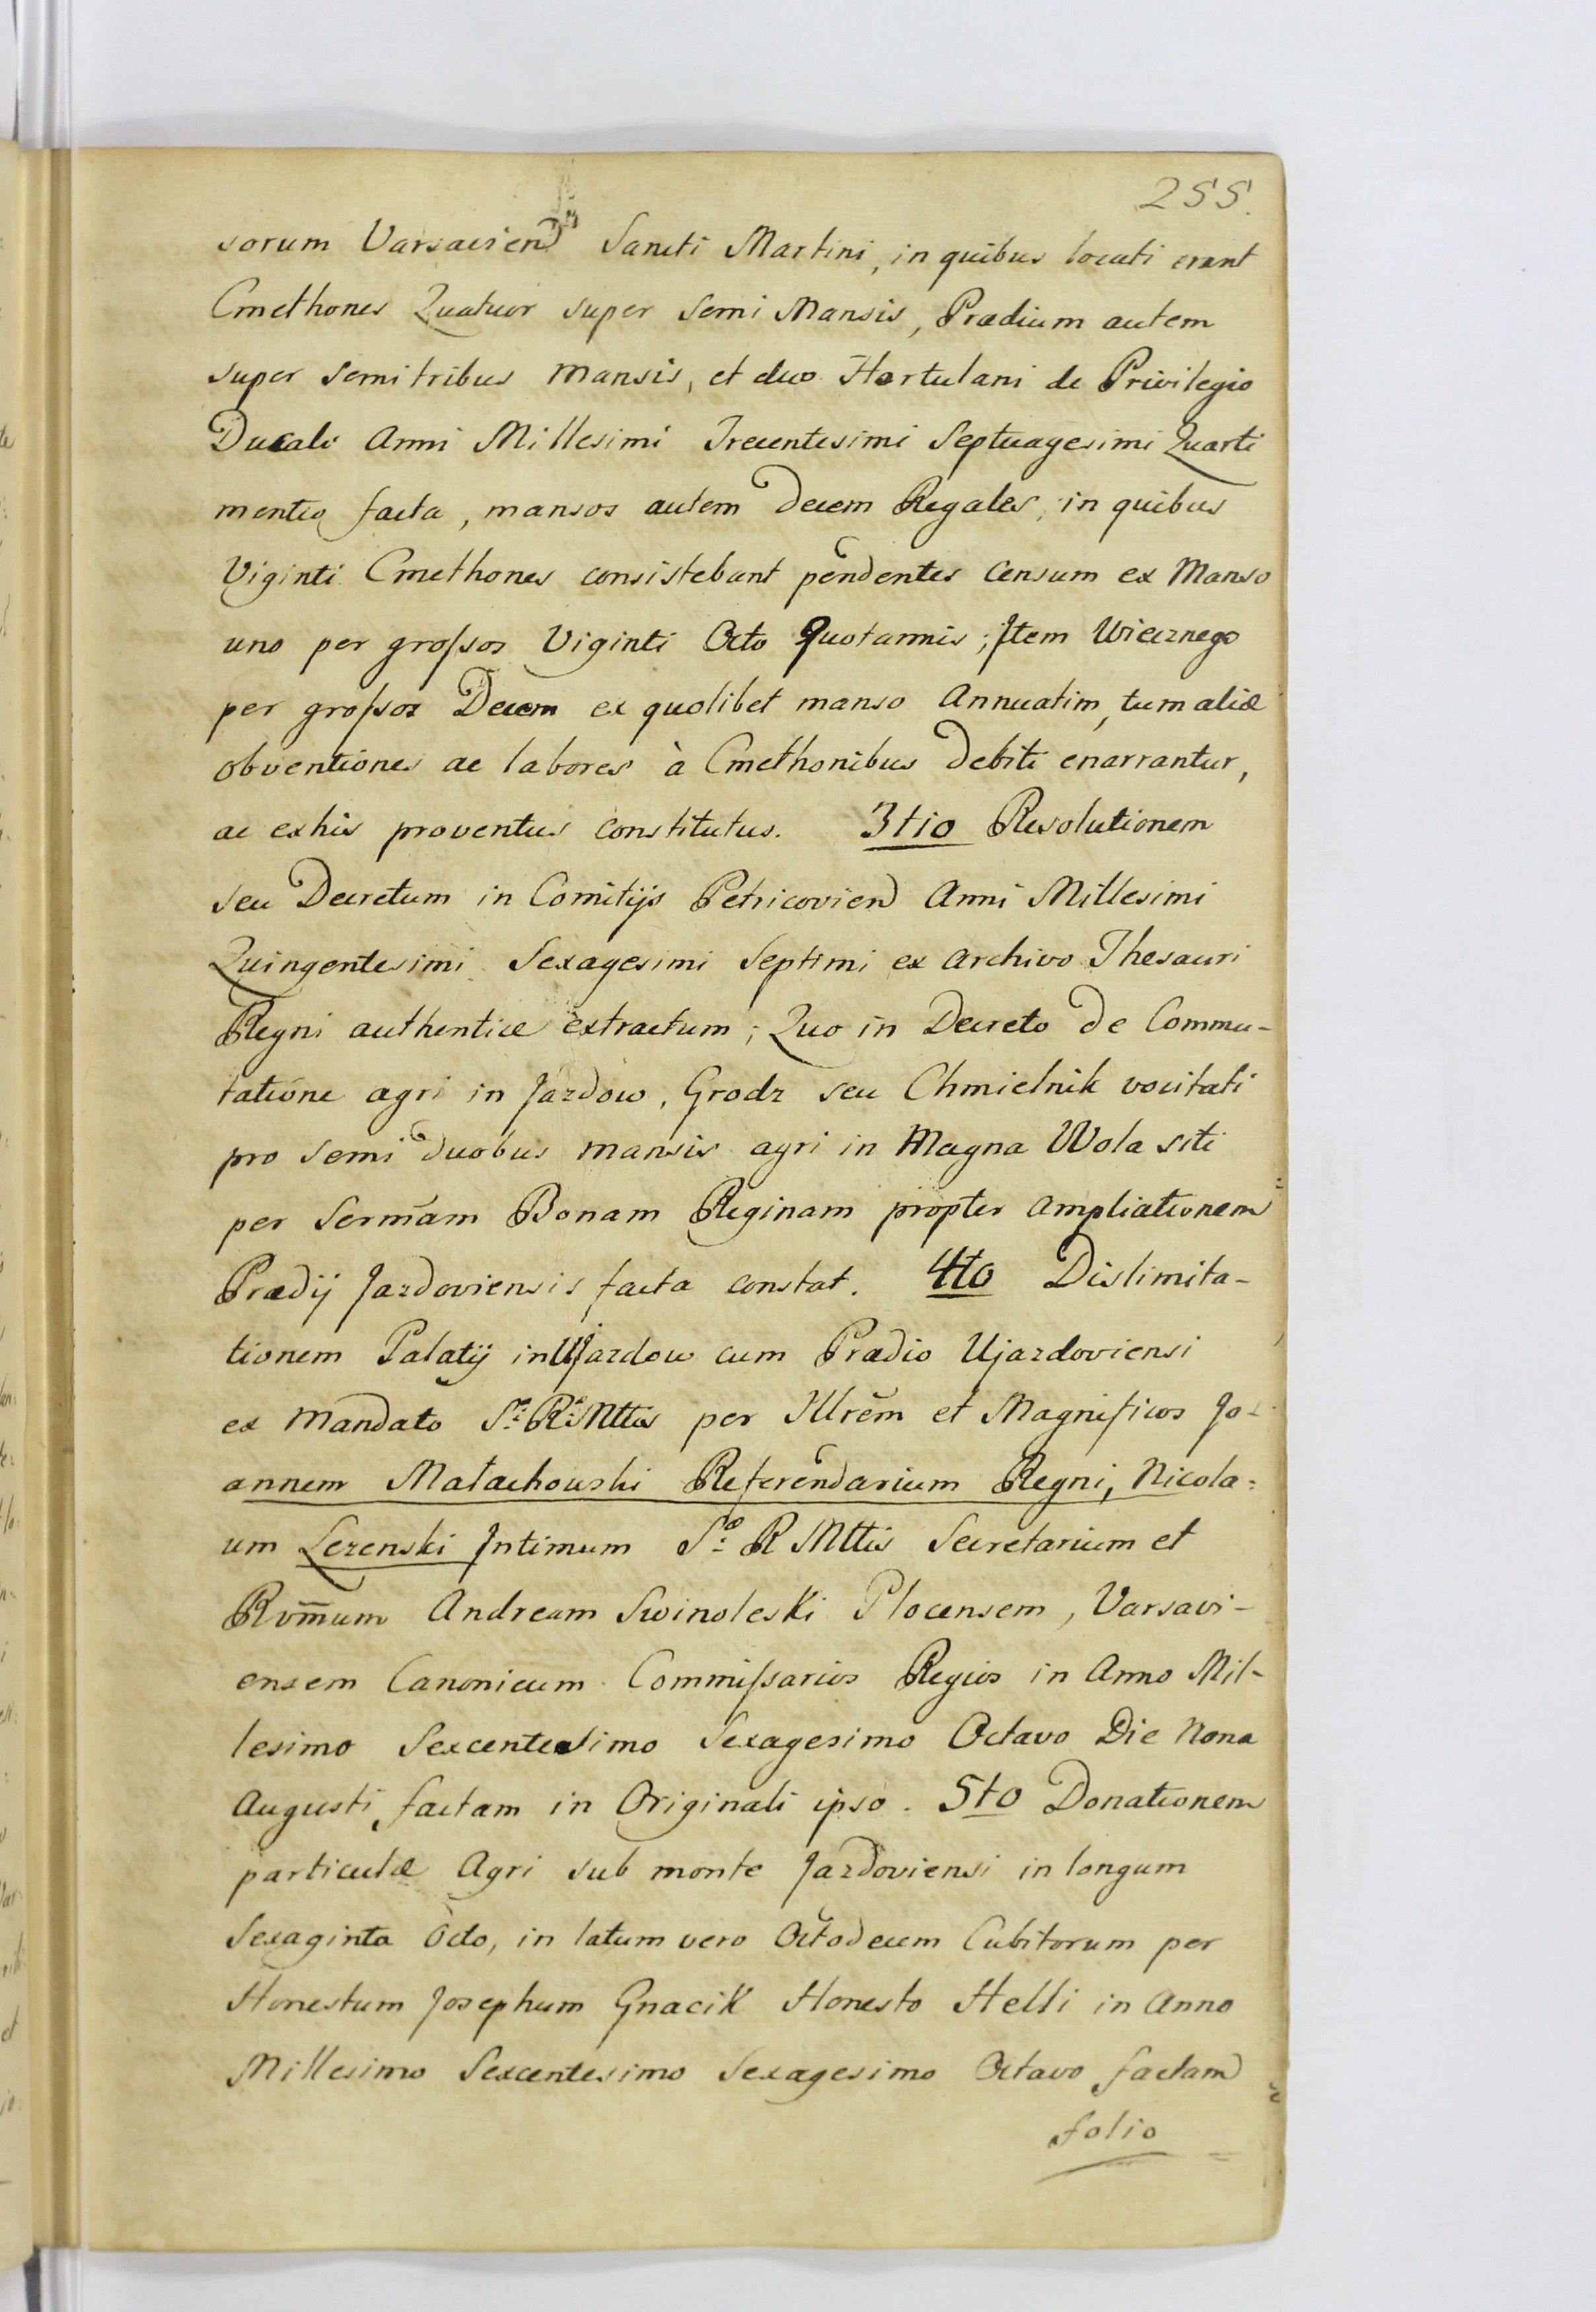 255.
sorum Varsavien Sancti Martini, in quibus locati erant
Cmethones Quatuor super semi Mansis, Prædium autem
super semitribus mansis, et duo Hortulani de Privilegio
Ducali Anni Millesimi Trecentesimi Septuagesimi Quarti
mentio facta, mansos autem Decem Regales, in quibus
Viginti Cmethones consistebant pendentes Censum ex Manso
uno per grossos Viginti Octo Quotannis; Item Wiecznego
per grossos Decem ex quolibet manso Annuatim, tum aliæ
obventiones ac labores à Cmethonibus debiti enarrantur,
ac ex his proventus constitutus. 3tio Resolutionem
seu Decretum in Comitijs Petricovien Anni Millesimi
Quingentesimi Sexagesimi Septimi ex Archivo Thesauri
Regni authentice extractum; Quo in Decreto de Commu-
tatione agri in Jazdow, Grodz seu Chmielnik vocitati
pro semi duobus mansis agri in Magna Wola siti
per Sermãm Bonam Reginam propter ampliationem
Prædij Jazdoviensis facta constat. 4to Dislimita-
tionem Palatij in Ujazdow cum Prædio Ujazdoviensi
ex Mandato Sæ: Ræ: Mttis per Illrẽm et Magnificos Jo-
annem Małachowski Referendarium Regni, Nicola=
um Lezenski Intimum Sæ: R Mttis Secretarium et
Rvm̃um Andream Swinoleski Plocensem, Varsavi-
ensem Canonicum Commissarios Regios in Anno Mil-
lesimo Sexcentesimo Sexagesimo Octavo Die Nona
Augusti factam in Originali ipso. 5to Donationem
particulæ Agri sub monte Jazdoviensi in longum
Sexaginta Octo, in latum vero Octodecem Cubitorum per
Honestum Josephum Gnacik Honesto Helli in Anno
Millesimo Sexcentesimo Sexagesimo Octavo factam
folio